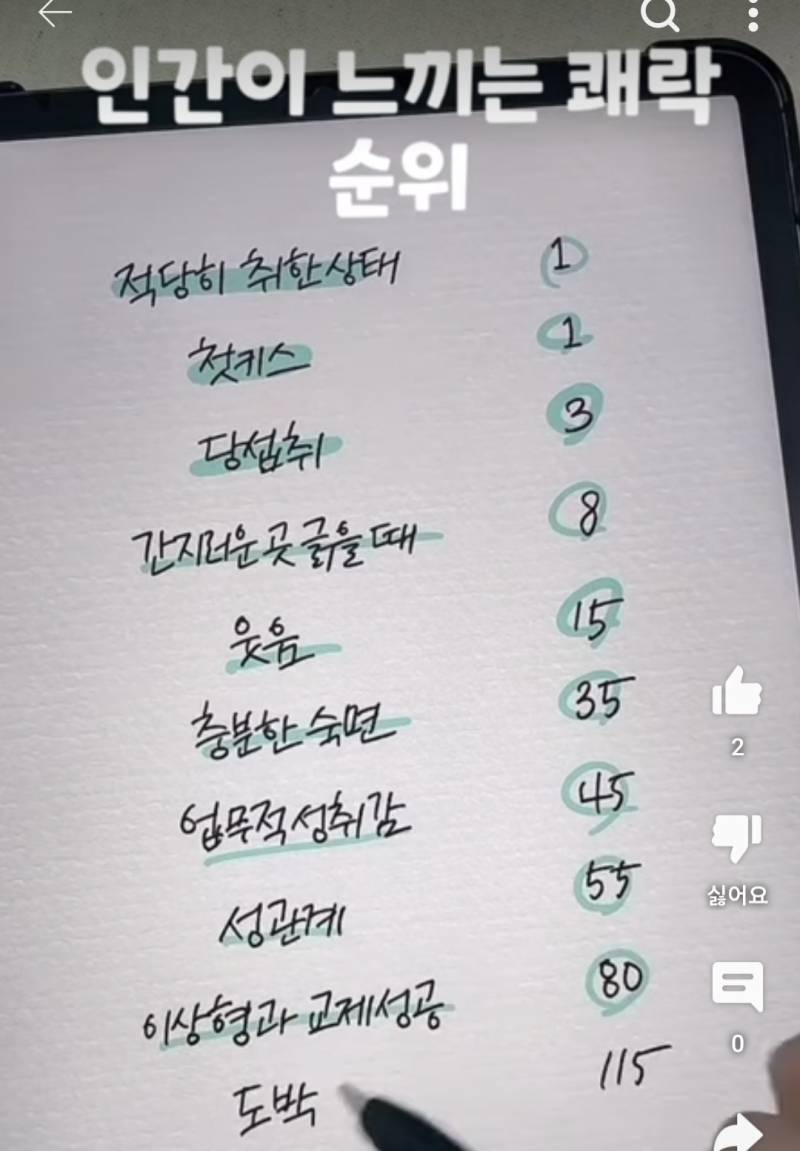 인간이 느끼는 쾌락
순위
적당히 취한상태 1
첫키스 1
당섭취 3
간지러운 곳 긁을 때 8
웃음 15
충분한 숙면 35
업무적 성취감 45
성관계 55
이상형과 교제성공 80
도박 115
2
싫어요
0